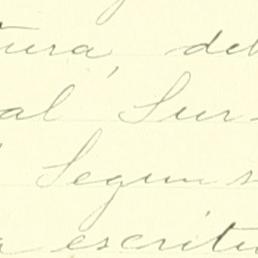 tura, deb
al Sur-
Segun s
a escritu